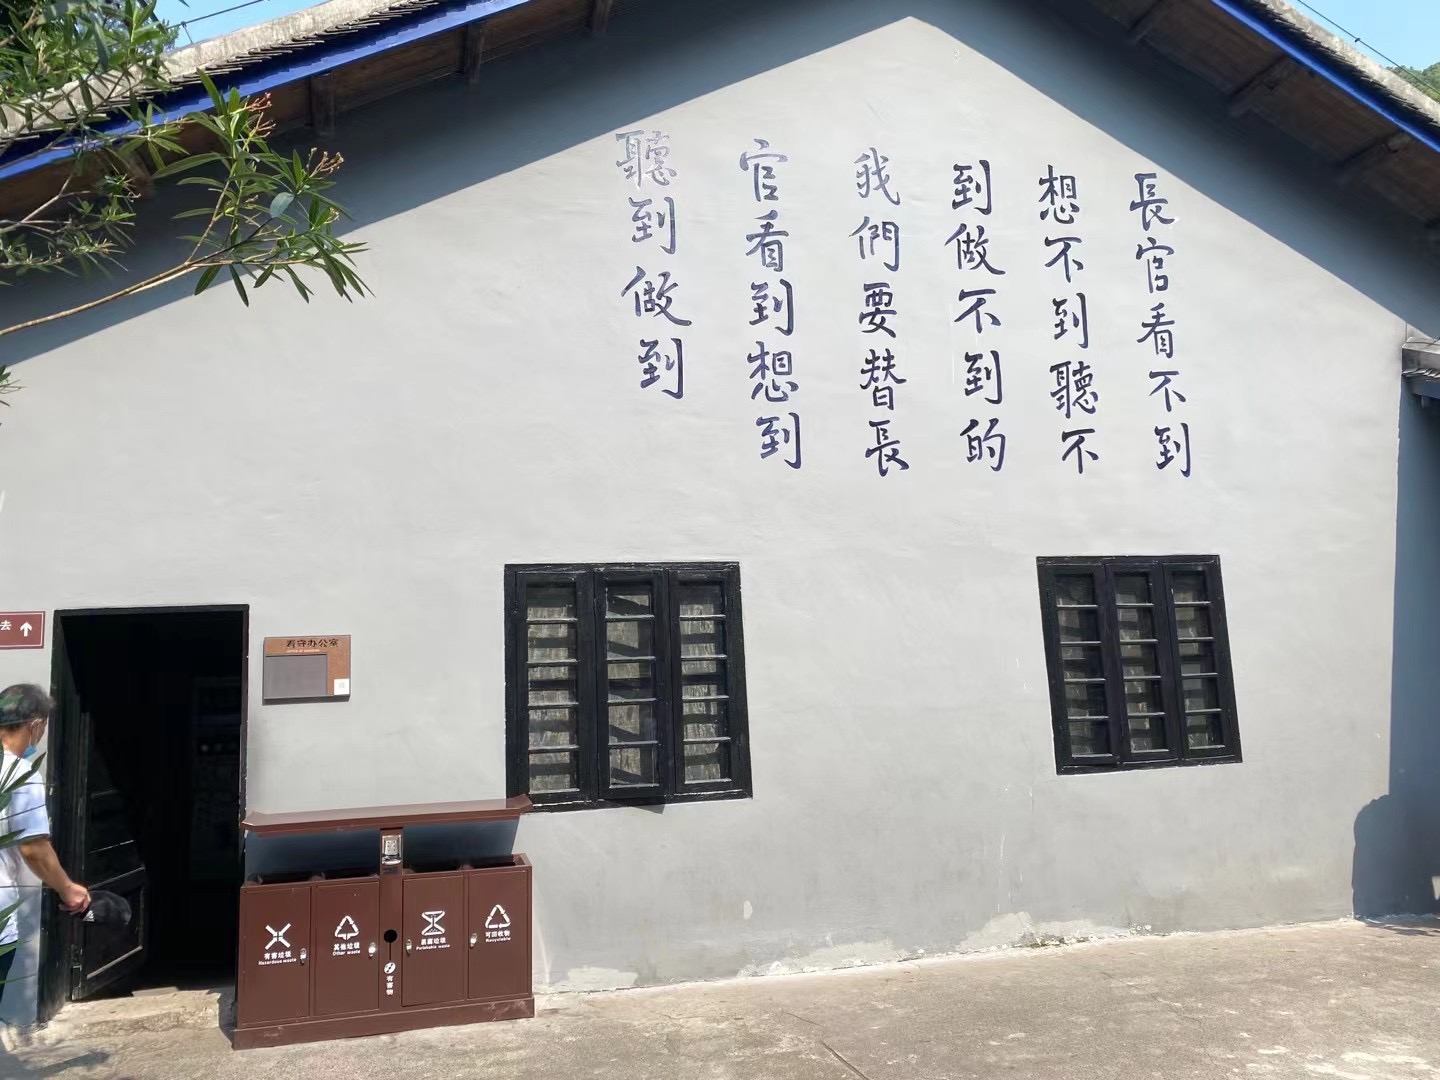 長官看不到
想不到聽不
到做不到的
我們要替長
官看到想到
聽到做到
去
看守办公室
有害垃圾
Hazardous waste
其他垃圾
Other waste
有害物
易腐垃圾
Perishable waste
可回收物
Recyclable